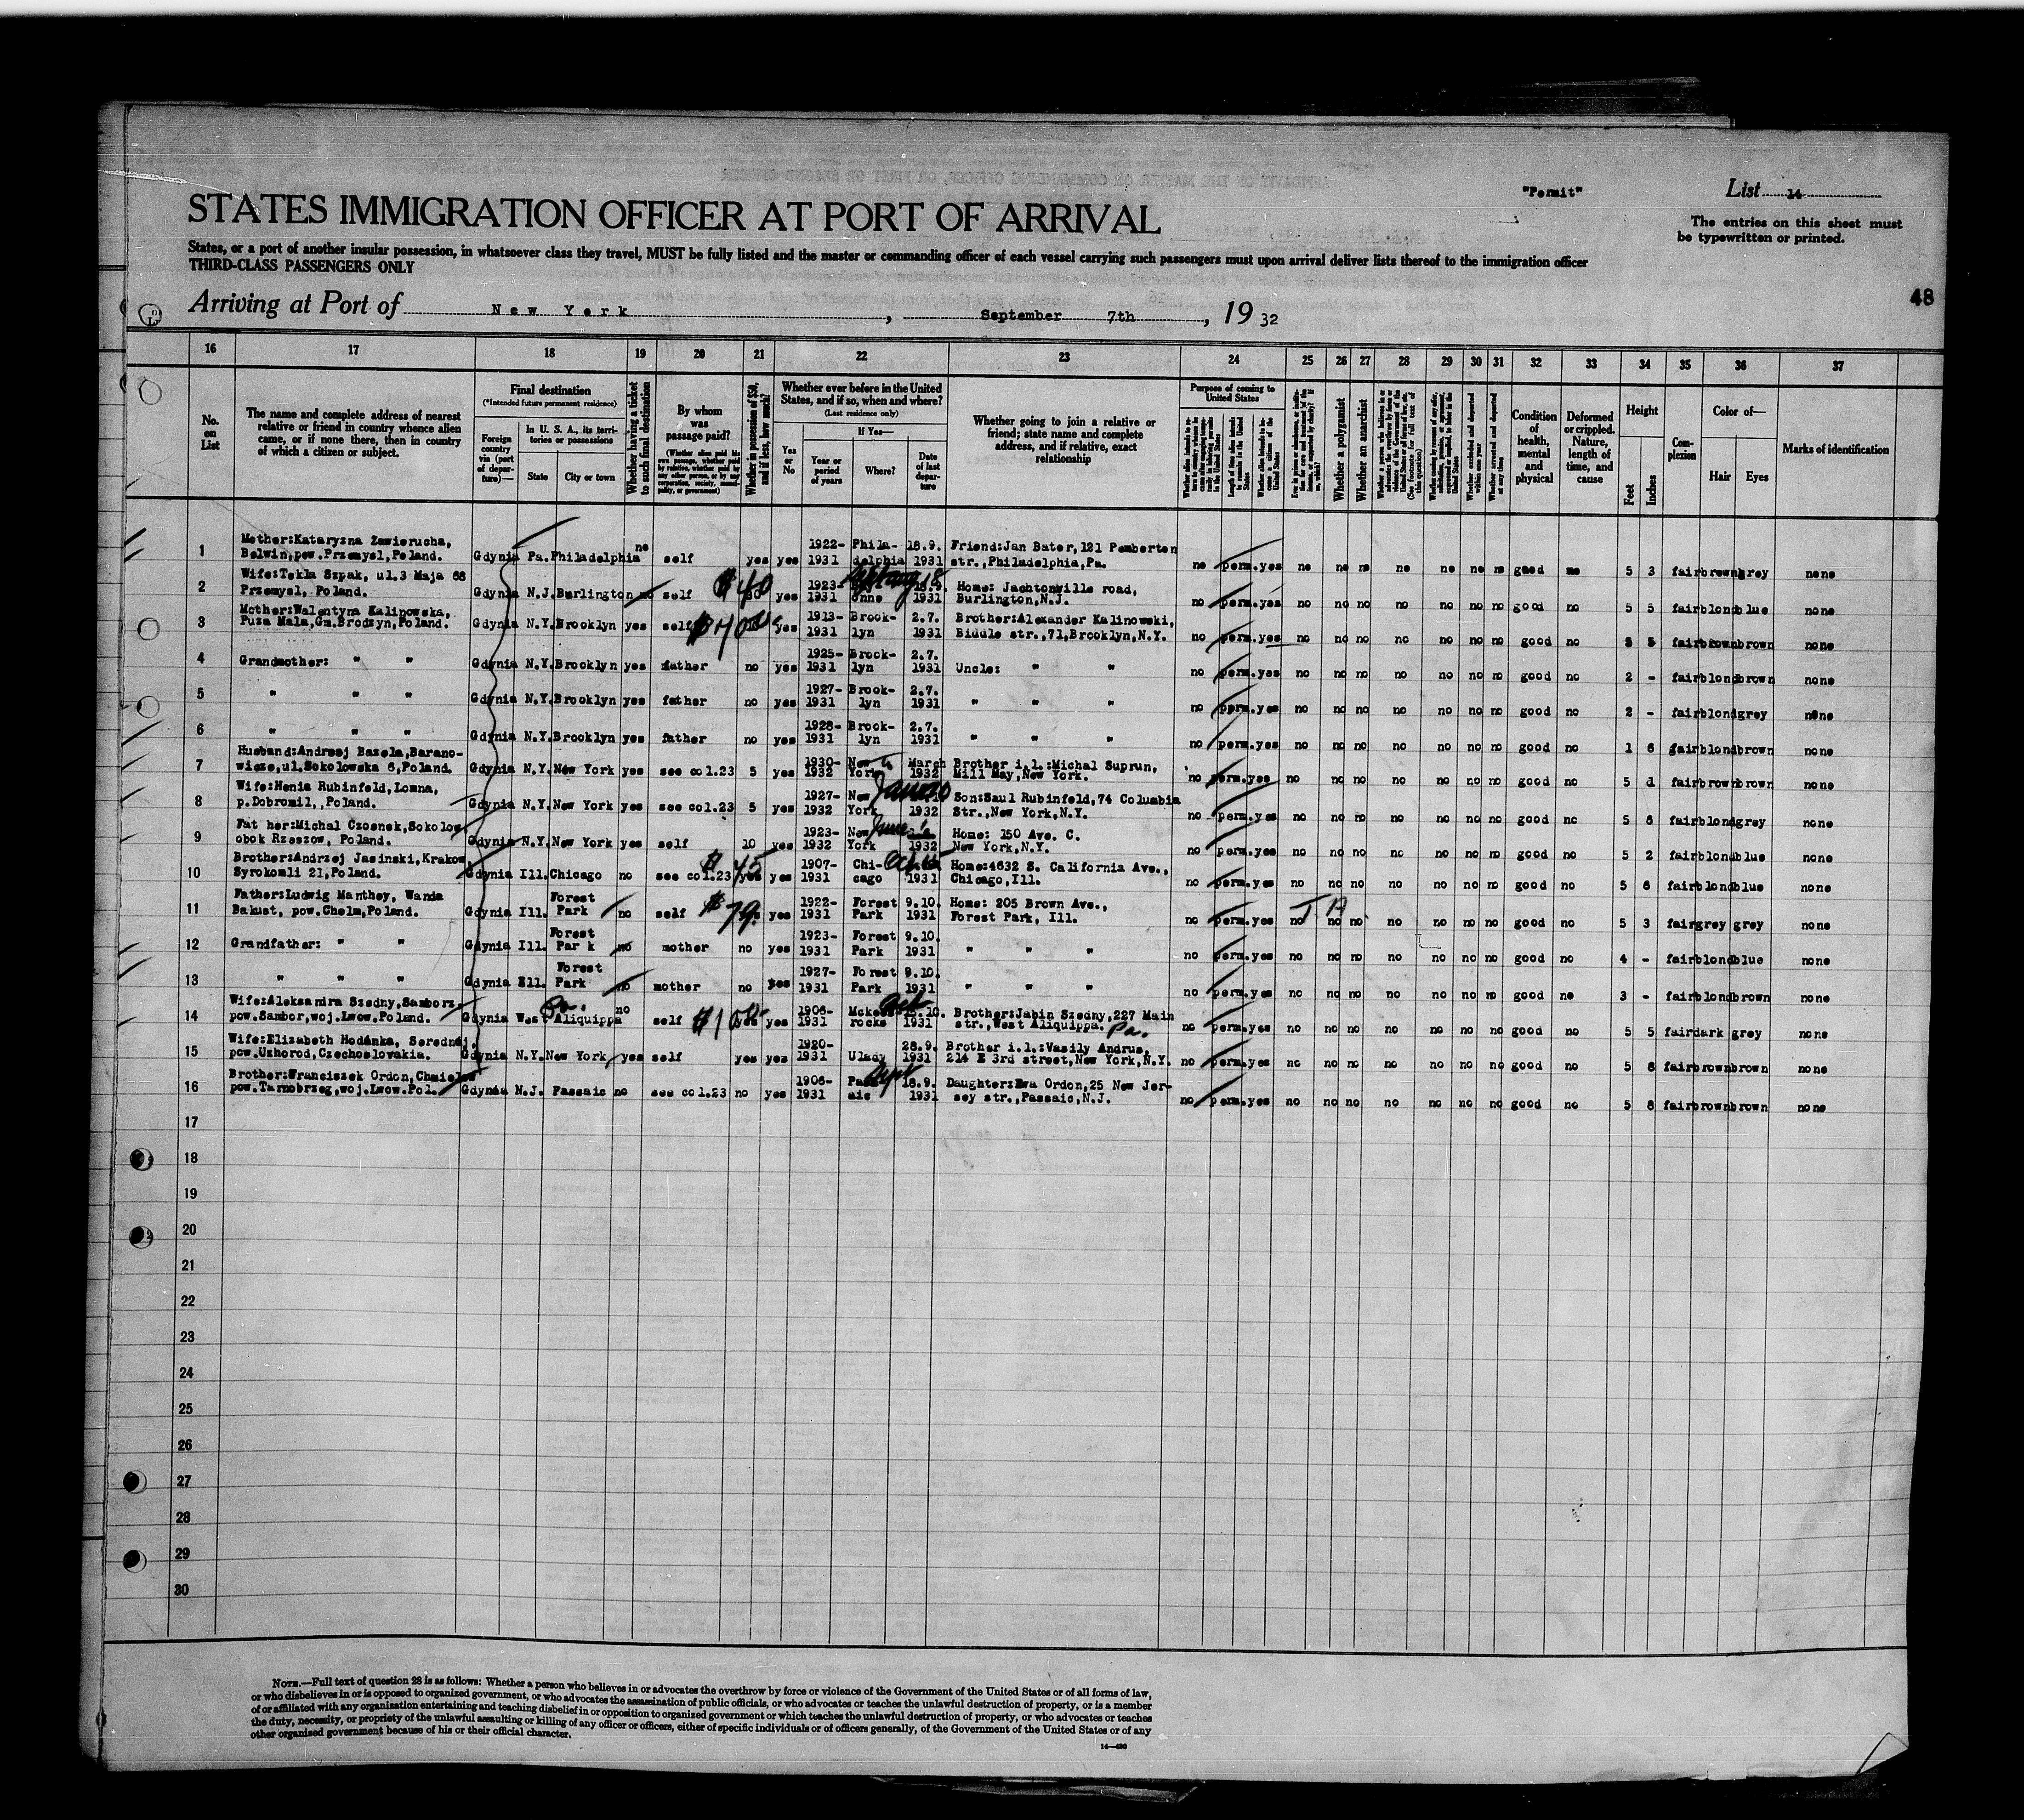 "Permit"
List 14
STATES IMMIGRATION OFFICER AT PORT OF ARRIVAL
The entries on this sheet must
be typewritten or printed.
States, or a port of another insular possession, in whatsoever class they travel, MUST be fully listed and the master or commanding officer of each vessel carrying such passengers must upon arrival deliver lists thereof to the immigration officer
THIRD-CLASS PASSENGERS ONLY
48
Arriving at Port of New York, September 7th, 19 32
16 17 18 19 20 21 22 23 24 25 26 27 28 29 30 31 32 33 34 35 36 37
No. on List
The name and complete address of nearest relative or friend in country whence alien came, or if none there, then in country of which a citizen or subject.
Final destination
(*Intended future permanent residence)
Foreign country via (port of departure)—
In U. S. A., its territories or possessions
State
City or town
Whether having a ticket to such final destination
By whom was passage paid?
(Whether alien paid his own passage, whether paid by relative, whether paid by any other person, or by any corporation, society, municipality, or government)
Whether in possession of $50, and if less, how much?
Whether ever before in the United States, and if so, when and where?
(Last residence only)
Yes or No
If Yes—
Year or period of years
Where?
Date of last departure
Whether going to join a relative or friend; state name and complete address, and if relative, exact relationship
Purpose of coming to United States
Whether a polygamist
Whether an anarchist
Condition of health, mental and physical
Deformed or crippled. Nature, length of time, and cause
Height
Feet
Inches
Complexion
Color of—
Hair
Eyes
Marks of identification
1 Mother:Kataryzna Zawierucha, Belwin,pow.Przemysl,Poland. Gdynia Pa. Philadelphia no self yes yes 1922-1931 Philadelphia 18.9. 1931 Friend:Jan Bater, 121 Pemberton str.,Philadelphia,Pa. no perm. yes no no no no no no no good no 5 3 fair brown grey none
2 Wife:Tekla Szpak, ul.3 Maja 68 Przemysl, Poland. Gdynia N.J. Burlington no self $40 yes 1923-1931 18.9. 1931 Home: Jachtonville road, Burlington,N.J. no perm. yes no no no no no no no good no 5 5 fair blond blue none
3 Mother:Walentyna Kalinowska, Puza Mala,Gm.Brodzyn,Poland. Gdynia N.Y. Brooklyn yes self yes 1913-1931 Brooklyn 2.7. 1931 Brother:Alexander Kalinowski, Biddle str.,71,Brooklyn,N.Y. no perm. yes no no no no no no no good no 5 5 fair brown brown none
4 Grandmother: " " Gdynia N.Y. Brooklyn yes father no yes 1925-1931 Brooklyn 2.7. 1931 Uncle: " " no perm. yes no no no no no no no good no 2 - fair blond brown none
5 " " " Gdynia N.Y. Brooklyn yes father no yes 1927-1931 Brooklyn 2.7. 1931 " " " no perm. yes no no no no no no no good no 2 - fair blond grey none
6 " " " Gdynia N.Y. Brooklyn yes father no yes 1928-1931 Brooklyn 2.7. 1931 " " " no perm. yes no no no no no no no good no 1 6 fair blond brown none
7 Husband:Andrzej Bazela,Baranowicze,ul.Sokolowska 6,Poland. Gdynia N.Y. New York yes see col.23 5 yes 1930-1932 New York March 1932 Brother i.l.:Michal Suprun, Mill May,New York. no perm. yes no no no no no no no good no 5 fair brown brown none
8 Wife:Henia Rubinfeld, Lomna, p.Dobromil,,Poland. Gdynia N.Y. New York yes see col.23 5 yes 1927-1932 New York 1932 Son:Saul Rubinfeld,74 Columbia Str.,New York,N.Y. no perm. yes no no no no no no no good no 5 6 fair blond grey none
9 Fat her:Michal Czosnek,Sokolow obok Rzeszow, Poland. Gdynia N.Y. New York yes self 10 yes 1923-1932 New York June 1932 Home: 150 Ave. C. New York,N.Y. no perm. yes no no no no no no no good no 5 2 fair blond blue none
10 Brother:Andrzej Jasinski,Krakow, Syrokomli 21,Poland. Gdynia Ill. Chicago no see col.23 $45 yes yes 1907-1931 Chicago 1931 Home:4632 S. California Ave., Chicago,Ill. no perm. yes no no no no no no no good no 5 6 fair blond blue none
11 Father:Ludwig Manthey, Wanda Bakust, pow.Chelm,Poland. Gdynia Ill. Forest Park no self $79. yes 1922-1931 Forest Park 9.10. 1931 Home: 205 Brown Ave., Forest Park, Ill. no perm. yes no no no no no no no good no 5 3 fair grey grey none
12 Grandfather: " " Gdynia Ill. Forest Park no mother no yes 1923-1931 Forest Park 9.10. 1931 " " " no perm. yes no no no no no no no good no 4 - fair blond blue none
13 " " " Gdynia Ill. Forest Park no mother no yes 1927-1931 Forest Park 9.10. 1931 " " " no perm. yes no no no no no no no good no 3 - fair blond brown none
14 Wife:Aleksandra Szedny,Samborz, pow.Sambor,woj.Lwow.Poland. Gdynia Pa. West Aliquippa no self yes 1906-1931 Oct 1931 Brother:Jabin Szedny,227 Main str.,West Aliquippa. Pa. no perm. yes no no no no no no no good no 5 5 fair dark grey none
15 Wife:Elizabeth Hodánka, Serednéj, pow.Uzhorod,Czechoslovakia. Gdynia N.Y. New York yes self yes yes 1920-1931 Ulady 28.9. 1931 Brother i.l.:Vasily Andrus, 214 E 3rd street,New York,N.Y. no perm. yes no no no no no no no good no 5 8 fair brown brown none
16 Brother:Franciszek Ordon,Chmielow pow.Tarnobrzeg,woj.Lwow.Pol. Gdynia N.J. Passaic no see col.23 no yes 1906-1931 Passaic Sept 18.9. 1931 Daughter:Ewa Ordon,25 New Jersey str.,Passaic,N.J. no perm. yes no no no no no no no good no 5 8 fair brown brown none
17
18
19
20
21
22
23
24
25
26
27
28
29
30
NOTE.—Full text of question 28 is as follows: Whether a person who believes in or advocates the overthrow by force or violence of the Government of the United States or of all forms of law,
or who disbelieves in or is opposed to organized government, or who advocates the assassination of public officials, or who advocates or teaches the unlawful destruction of property, or is a member
of or affiliated with any organization entertaining and teaching disbelief in or opposition to organized government or which teaches the unlawful destruction of property, or who advocates or teaches
the duty, necessity, or propriety of the unlawful assaulting or killing of any officer or officers, either of specific individuals or of officers generally, of the Government of the United States or of any
other organized government because of his or their official character.
14—430